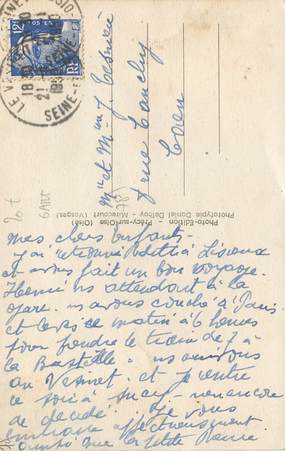 LE VÉSINET
SEINE-ET-OISE
18 30
21
12F
POSTES
Mme et Mr J. Tesnière
7 rue Cauchy
Caen
Photo-Edition - Précy-sur-Oise (Oise)
Phototypie Daniel Delboy - Mirecourt (Vosges)
Mes chers enfants -
J'ai retrouvé à Lisieux
et avons fait un bon voyage
Henri ns attendait à la
gare. ns avons couché à Paris
et ce matin à 6 heures
pour prendre le train de 7 à
la Bastille - ns
au Vésinet. et je rentre
ce soir à Sucy - rien encore
de décidé. Je vous
embrasse affectueusement
ainsi que la petite Reine.